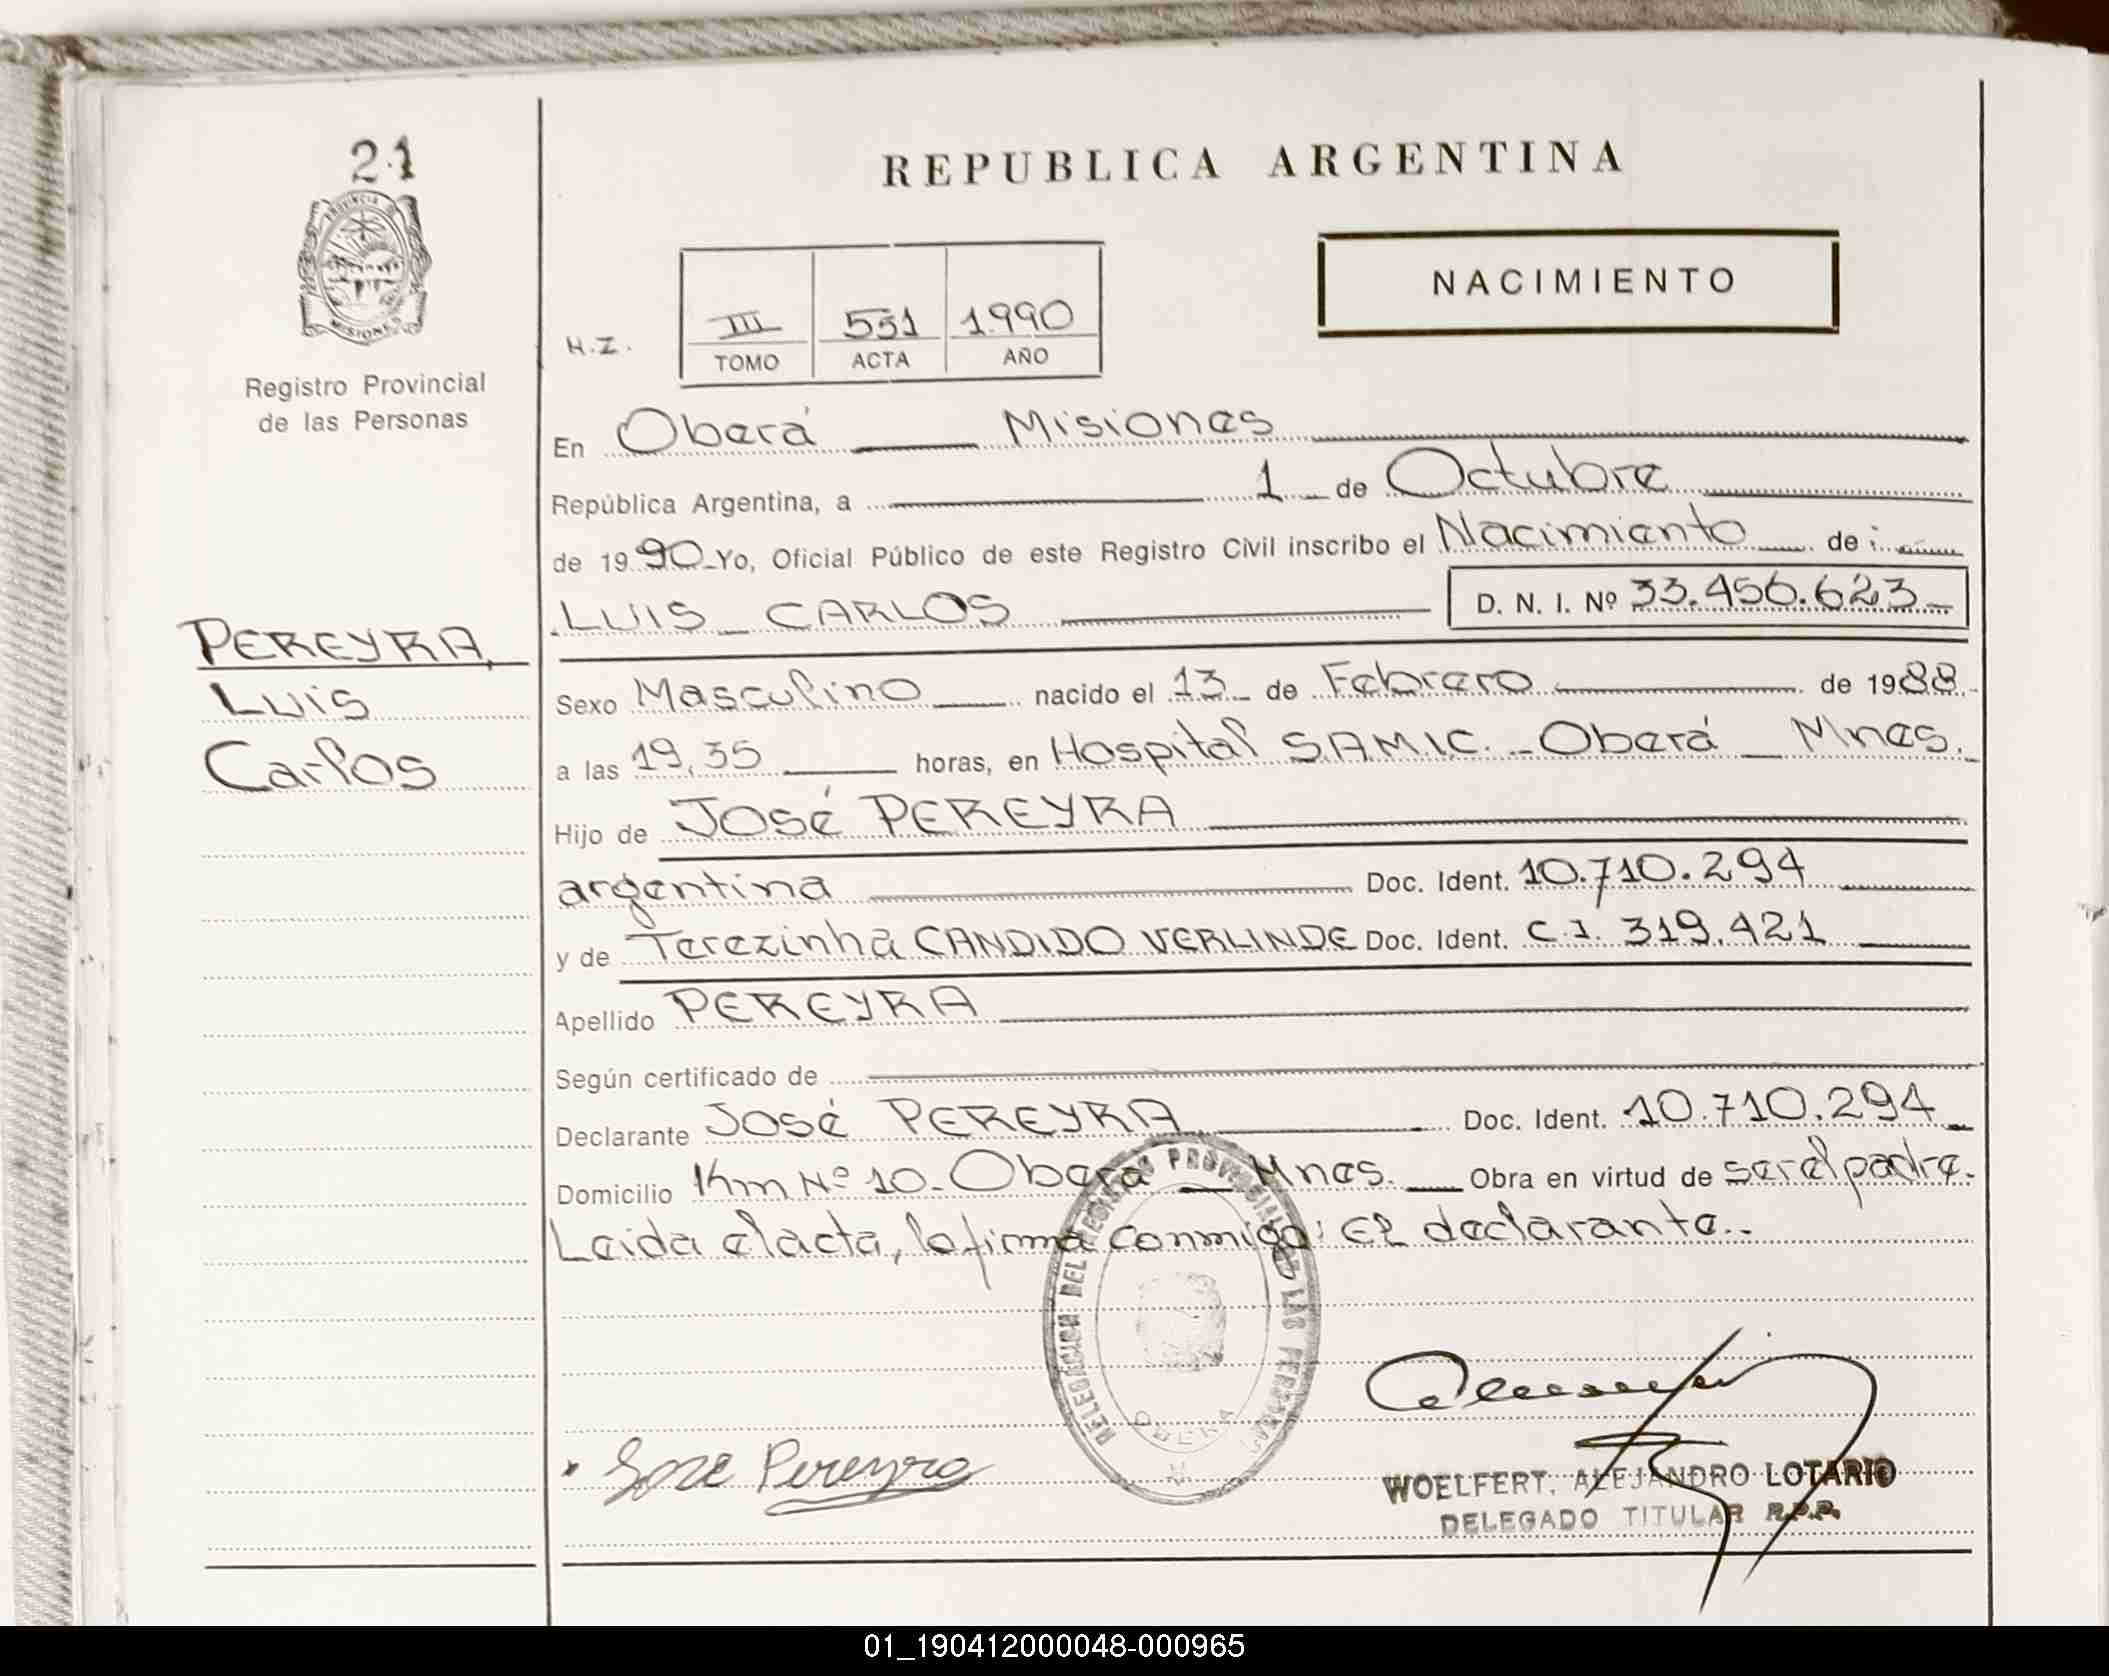 21
PROVINCIA DE
MISIONES
Registro Provincial
de las Personas
PEREYRA,
Luis
Carlos
REPUBLICA ARGENTINA
NACIMIENTO
H.Z.
III 551 1990
TOMO ACTA AÑO
En Oberá Misiones
República Argentina, a 1 de Octubre
de 1990 Yo, Oficial Público de este Registro Civil inscribo el Nacimiento de:
LUIS CARLOS D. N. I. Nº 33.456.623
Sexo Masculino nacido el 13 de Febrero de 1988
a las 19,35 horas, en Hospital S.A.M.I.C. - Oberá - Mnes.
Hijo de José PEREYRA
argentina Doc. Ident. 10.710.294
y de Terezinha CANDIDO VERLINDE Doc. Ident. C.I. 319.421
Apellido PEREYRA
Según certificado de
Declarante José PEREYRA Doc. Ident. 10.710.294
Domicilio Km Nº 10 - Oberá - Mnes. Obra en virtud de ser el padre.
Leida el acta, la firma conmigo: El declarante..
DELEGACION DEL REGISTRO PROVINCIAL DE LAS PERSONAS
OBERA
José Pereyra
WOELFERT, ALEJANDRO LOTARIO
DELEGADO TITULAR R.P.P.
01_190412000048-000965